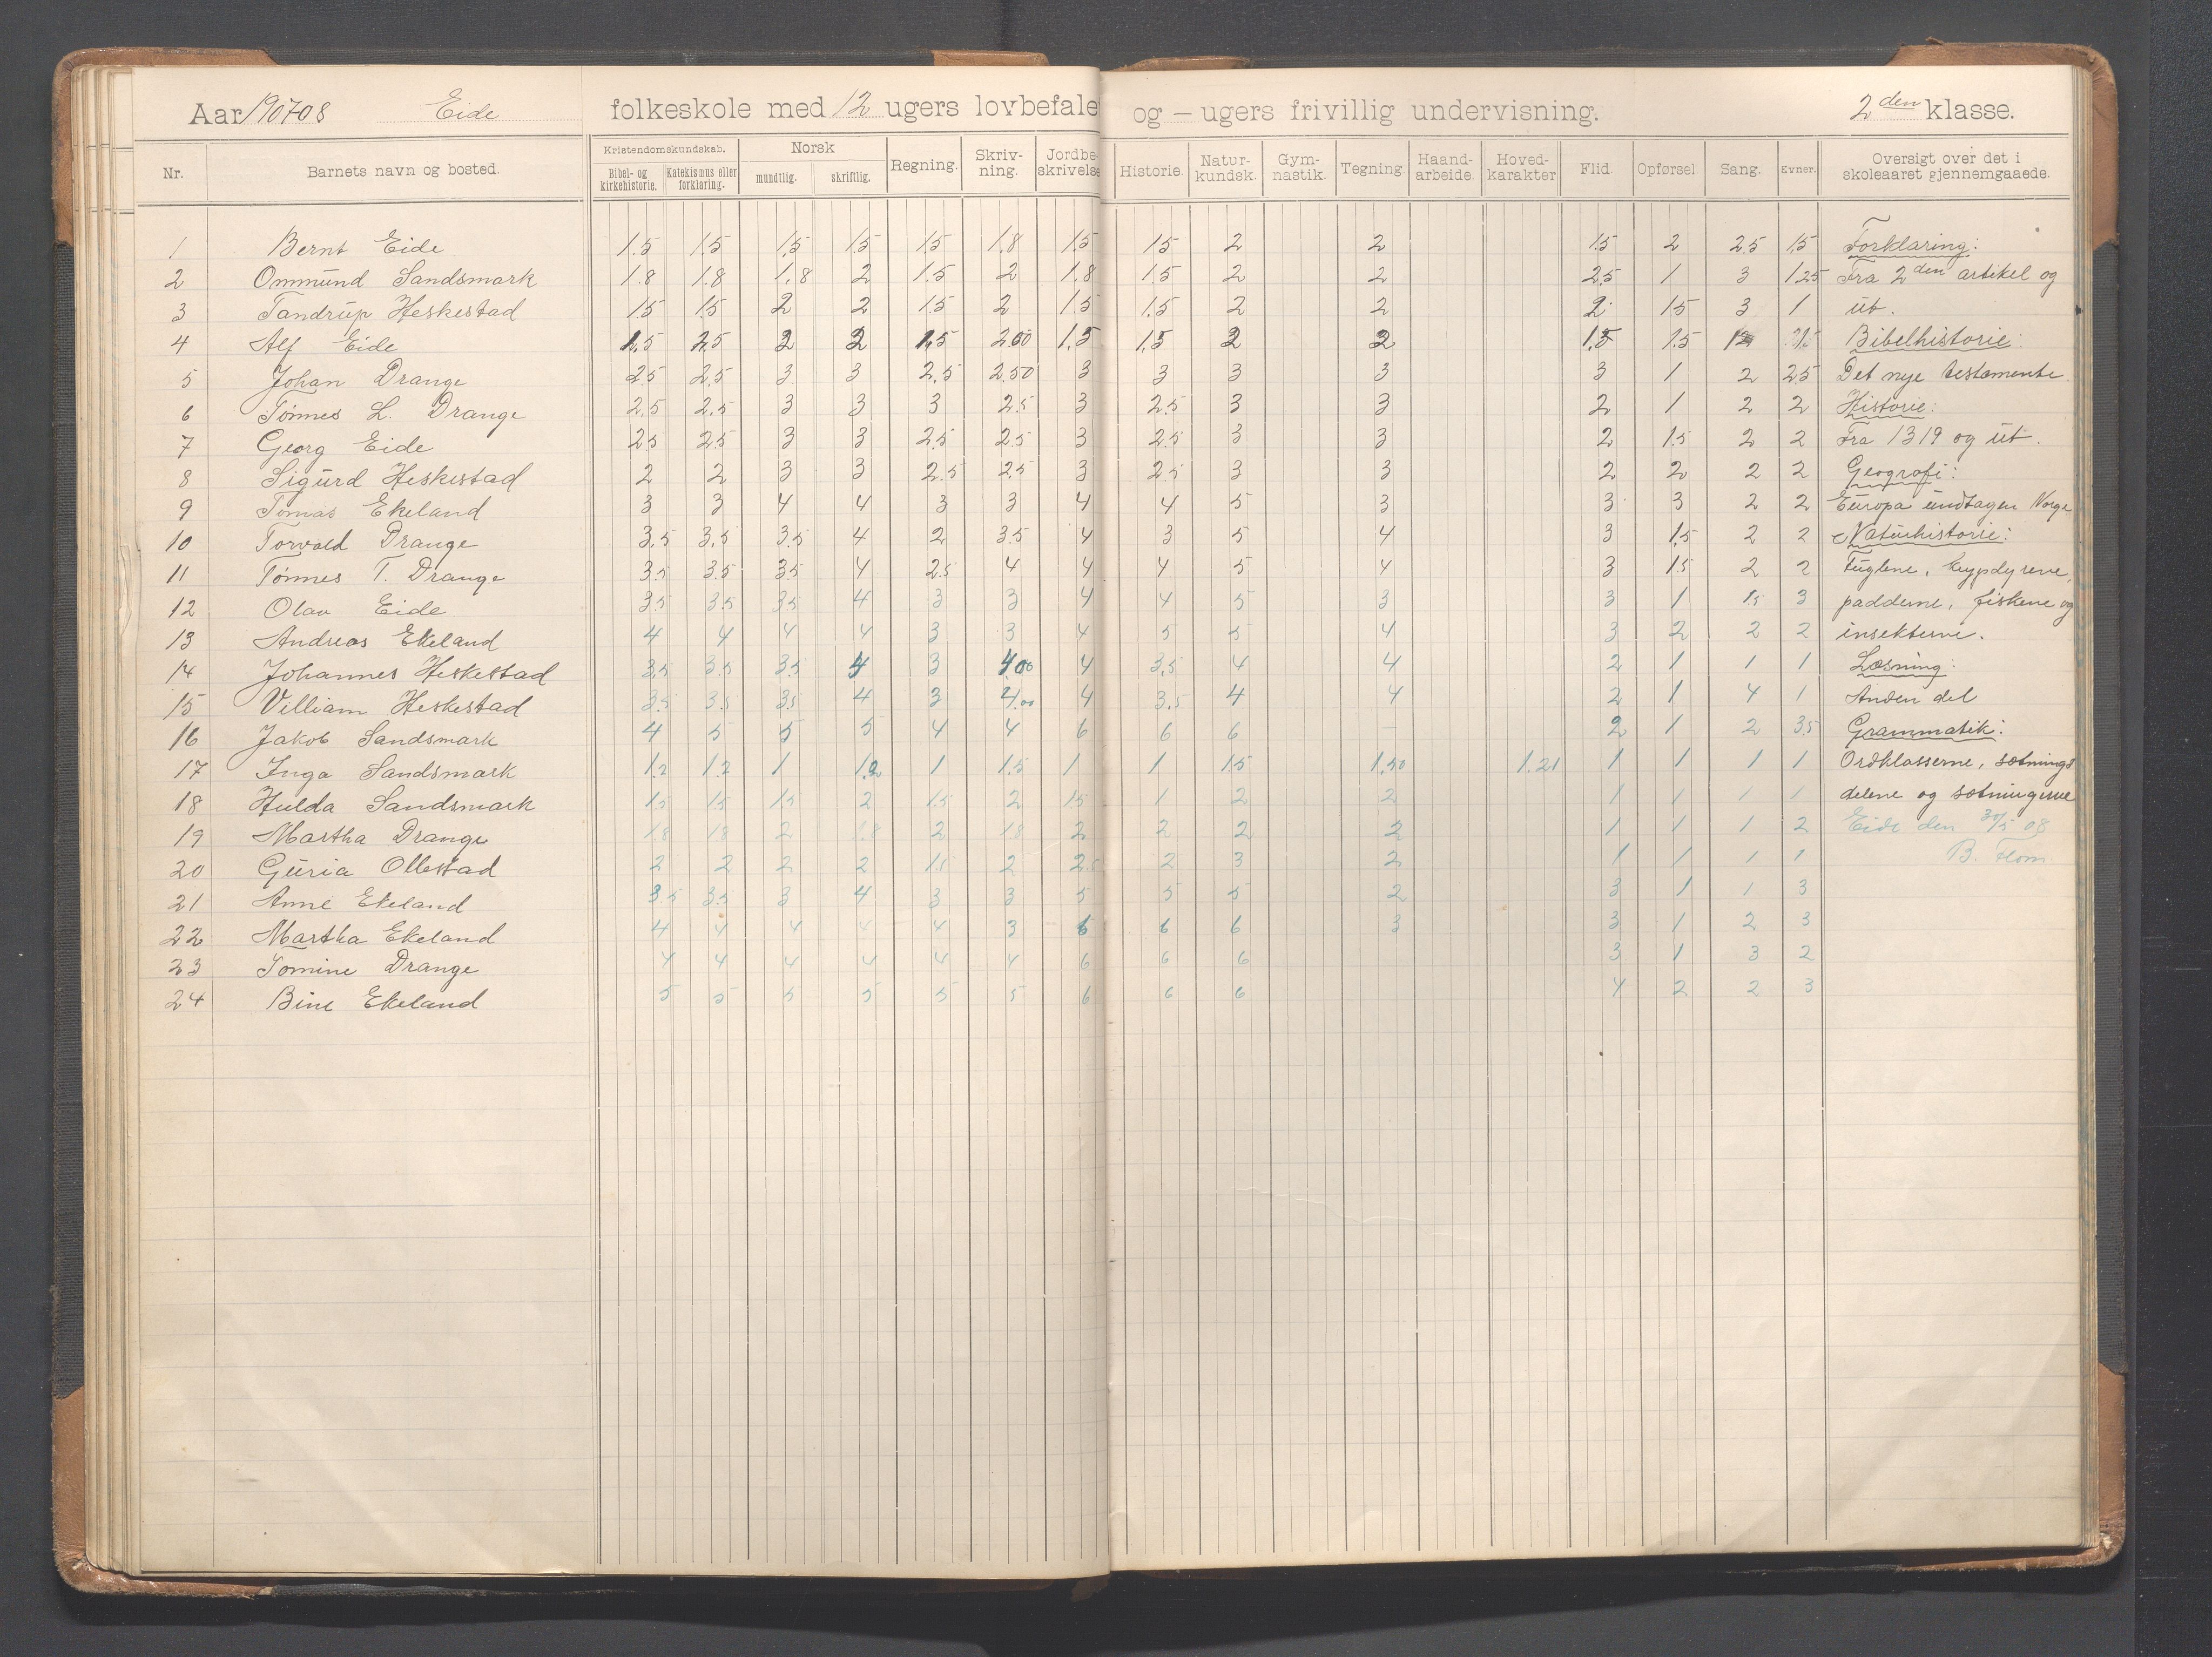 Aar 190708 Eide folkeskole med 12 ugers lovbefale og — ugers frivillig undervisning. 2den klasse.
Nr. Barnets navn og bosted. Kristendomskundskab. Bibel- og kirkehistorie. Katekismus eller forklaring. Norsk mundtlig. skriftlig. Regning. Skriv-ning. Jordbe-skrivelse Historie. Natur-kundsk. Gym-nastik. Tegning Haand-arbeide. Hoved-karakter Flid Opførsel Sang. Evner. Oversigt over det i skoleaaret gjennemgaaede.
1 Bernt Eide 1.5 1.5 1.5 1.5 1.5 1.8 1.5 1.5 2 2 1.5 2 2.5 1.5 Forklaring:
2 Ommund Sandsmark 1.8 1.8 1.8 2 1.5 2 1.8 1.5 2 2 2.5 1 3 1.25 Fra 2den artikel og
3 Tandrup Heskestad 1.5 1.5 2 2 1.5 2 1.5 1.5 2 2 2 1.5 3 1 ut.
4 Alf Eide 2.5 2 2 1.5 2.00 1.5 1.5 2 2 1.5 1.5 Bibelhistorie:
5 Johan Drange 2.5 2.5 3 3 2.5 2.50 3 3 3 3 3 1 2 2.5 Det nye testamente.
6 Tønnes L. Drange 2.5 2.5 3 3 3 2.5 3 2.5 3 3 2 1 2 2 Historie:
7 Georg Eide 2.5 2.5 3 3 2.5 2.5 3 2.5 3 3 2 1.5 2 2 Fra 1319 og ut.
8 Sigurd Heskestad 2 2 3 3 2.5 2.5 3 2.5 3 3 2 2 2 2 Geografi:
9 Tomas Ekeland 3 3 4 4 3 3 4 4 5 3 3 3 2 2 Europa undtagen Norge
10 Torvald Drange 3.5 3.5 3.5 4 2 3.5 4 3 5 4 3 1.5 2 2 Naturhistorie:
11 Tønnes T. Drange 3.5 3.5 3.5 4 2.5 4 4 4 5 4 3 1.5 2 2 Fuglene, krypdyrene,
12 Olav Eide 3.5 3.5 3.5 4 3 3 4 4 5 3 3 1 1.5 3 padderne, fiskene og
13 Andreas Ekeland 4 4 4 4 3 3 4 5 5 4 3 2 2 2 insekterne.
14 Johannes Heskestad 3.5 3.5 3.5 4 3 4.00 4 3.5 4 4 2 1 1 1 Læsning:
15 Villiam Heskestad 3.5 3.5 3.5 4 3 4.00 4 3.5 4 4 2 1 4 1 Anden del
16 Jakob Sandsmark 4 5 5 5 4 4 6 6 6 2 1 2 3.5 Grammatik:
17 Inga Sandsmark 1.2 1.2 1 1.2 1 1.5 1 1 1.5 1.50 1.21 1 1 1 1 Ordklasserne, sætnings
18 Hulda Sandsmark 1.5 1.5 1.5 2 1.5 2 1.5 1 2 2 1 1 1 1 delene og sætningerne
19 Martha Drange 1.8 1.8 2 1.8 2 1.8 2 2 2 2 1 1 1 2 Eide den 30/5 08
20 Guria Ollestad 2 2 2 2 1.5 2 2.5 2 3 2 1 1 1 1 B. Flom
21 Anne Ekeland 3.5 3.5 3 4 3 3 5 5 5 2 3 1 1 3
22 Martha Ekeland 4 4 4 4 4 3 6 6 6 3 3 1 2 3
23 Tomine Drange 4 4 4 4 4 4 6 6 6 3 1 3 2
24 Bine Ekeland 5 5 5 5 5 5 6 6 6 4 2 2 3